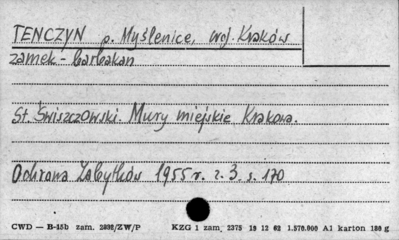 TENCZYN p. Myślenice, woj. Kraków
zamek - barbakan
St. Świszczowski. Mury miejskie Krakowa.
Ochrona Zabytków 1955 r. z. 3. s. 170
CWD — B-15b zam. 2898/ZW/P KZG 1 zam. 2375 18 12 62 1.570.000 A1 karton 180 g